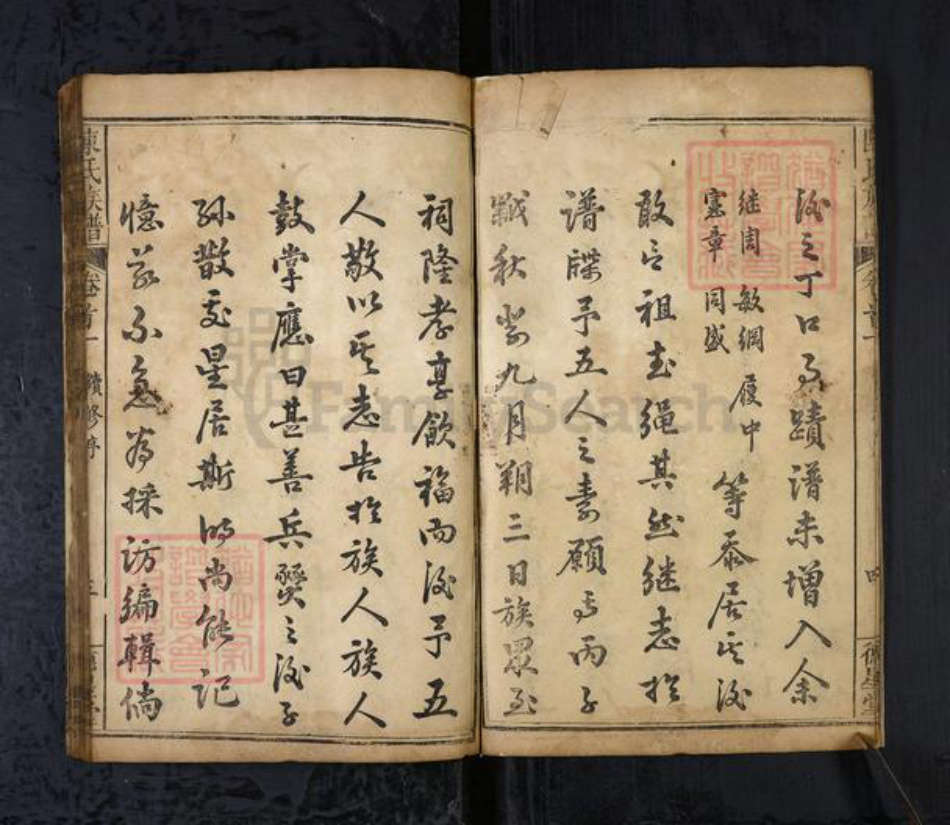 後之丁口事蹟譜未增入余
繼周 敏綱 履中
憲章 同盛
等忝居其後
敢曰祖武繩其然繼志於
譜牒予五人之素願也丙子
戰秋菊九月朔三日族眾至
祠隆孝享飲福而後予五
人敬以其志告於族人族人
鼓掌應曰甚善兵燹之後子
孫散處星居斯時尚能記
憶若不急為採訪編輯倘
陳氏族譜
卷首一 續修序
三
卷首一
四
FamilySearch